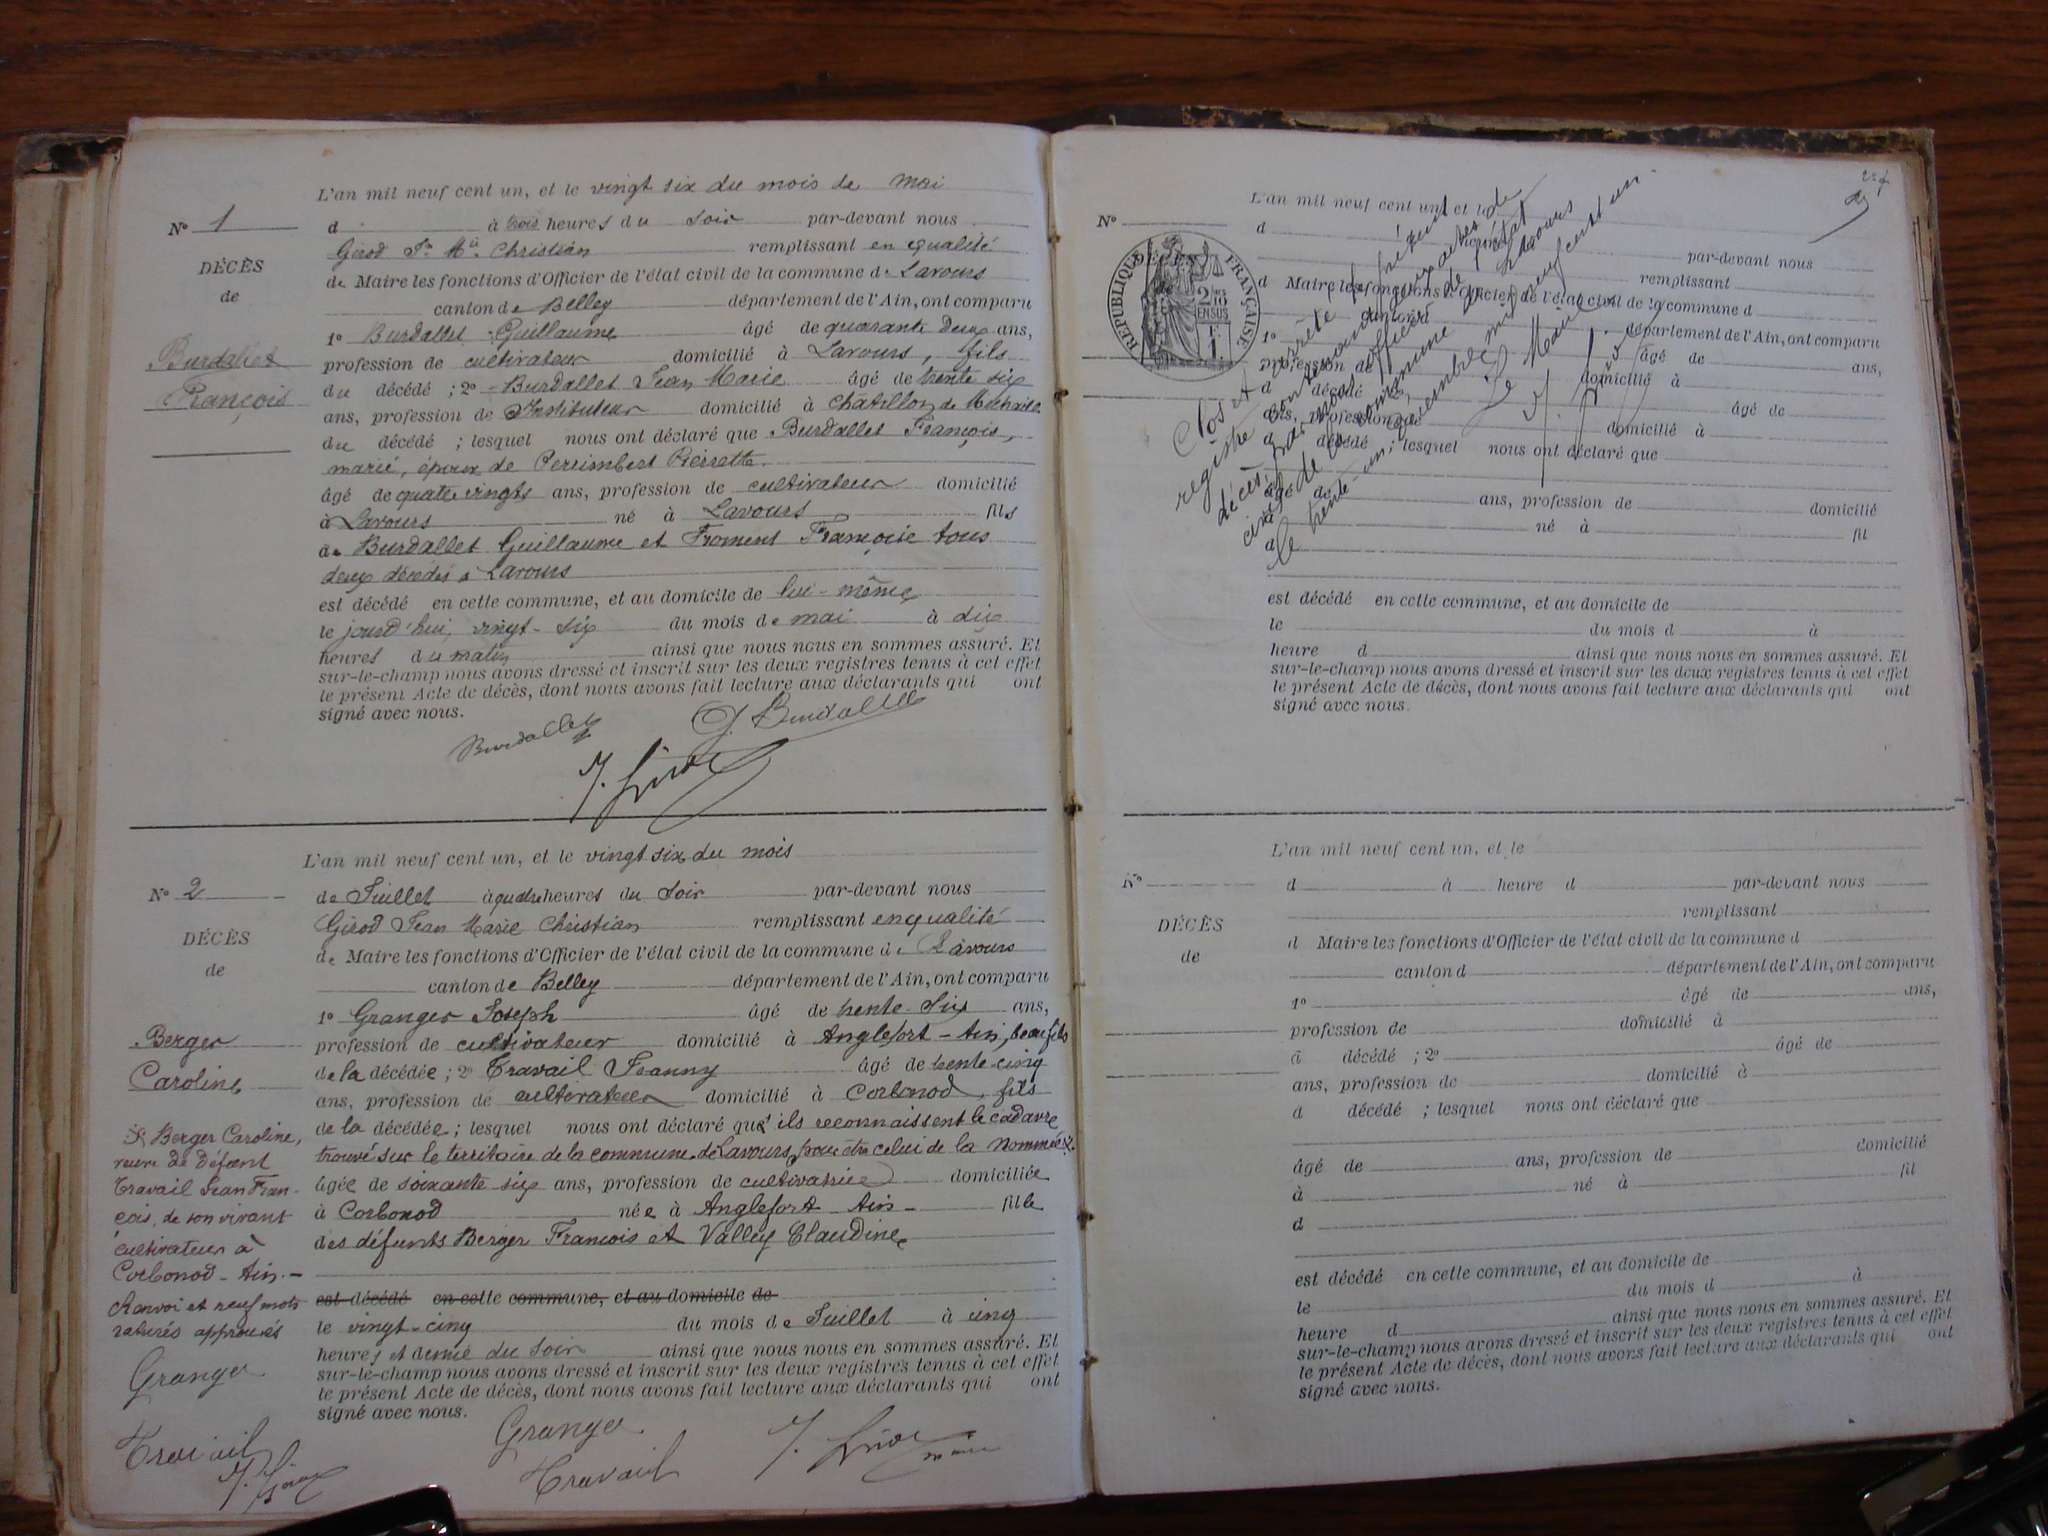 L'an mil neuf cent un, et le vingt six du mois de mai
N° 1 d à trois heures du soir par-devant nous
Girod Jn Mie Christian remplissant en qualité
DÉCÈS
de
de Maire les fonctions d'Officier de l'état civil de la commune de Lavours
canton de Belley département de l'Ain, ont comparu
1° Burdallet Guillaume âgé de quarante deux ans,
Burdallet
François
profession de cultivateur domicilié à Lavours, fils
du décédé ; 2° Burdallet Jean Marie âgé de trente six
ans, profession de Instituteur domicilié à Châtillon de Michaille
du décédé ; lesquel nous ont déclaré que Burdallet François,
marié, époux de Perrimbert Pierrette
âgé de quatre vingts ans, profession de cultivateur domicilié
à Lavours né à Lavours fils
de Burdallet Guillaume et Froment Françoise tous
deux décédés à Lavours
est décédé en cette commune, et au domicile de lui-même
le jourd'hui, vingt-six du mois de mai à dix
heures du matin ainsi que nous nous en sommes assuré. Et
sur-le-champ nous avons dressé et inscrit sur les deux registres tenus à cet effet
le présent Acte de décès, dont nous avons fait lecture aux déclarants qui ont
signé avec nous.
Burdallet J. Burdallet
J. Girod
L'an mil neuf cent un, et le vingt six du mois
N° 2 de Juillet à quatre heures du soir par-devant nous
Girod Jean Marie Christian remplissant en qualité
DÉCÈS
de
de Maire les fonctions d'Officier de l'état civil de la commune de Lavours
canton de Belley département de l'Ain, ont comparu
1° Granger Joseph âgé de trente six ans,
Berger
Caroline
profession de cultivateur domicilié à Anglefort - Ain, beau fils
de la décédée ; 2° Travail Jeanny âgé de trente-cinq
ans, profession de cultivateur domicilié à Corbonod, fils
de la décédée ; lesquel nous ont déclaré qu'ils reconnaissent le cadavre
trouvé sur le territoire de la commune de Lavours, pour être celui de la nommée
âgée de soixante six ans, profession de cultivatrice domiciliée
à Corbonod née à Anglefort - Ain - fille
des défunts Berger François et Valley Claudine
est décédé en cette commune, et au domicile de
le vingt-cinq du mois de Juillet à cinq
heures et demie du soir ainsi que nous nous en sommes assuré. Et
sur-le-champ nous avons dressé et inscrit sur les deux registres tenus à cet effet
le présent Acte de décès, dont nous avons fait lecture aux déclarants qui ont
signé avec nous.
Berger Caroline,
veuve de défunt
Travail Jean Fran-
çois, de son vivant
cultivateur à
Corbonod - Ain. -
Renvoi et neuf mots
raturés approuvés
Granger
Travail
J. Girod
Granger
Travail
J. Girod
maire
L'an mil neuf cent un, et le
N°
d
par-devant nous
remplissant
d Maire les fonctions d'Officier de l'état civil de la commune d
canton d département de l'Ain, ont comparu
1° âgé de ans,
profession de domicilié à
d décédé âgé de
ans, profession de domicilié à
décédé ; lesquel nous ont déclaré que
âgé de ans, profession de domicilié
né à fil
d
est décédé en cette commune, et au domicile de
le du mois d à
heure d ainsi que nous nous en sommes assuré. Et
sur-le-champ nous avons dressé et inscrit sur les deux registres tenus à cet effet
le présent Acte de décès, dont nous avons fait lecture aux déclarants qui ont
signé avec nous.
RÉPUBLIQUE FRANÇAISE
2 10 EN SUS
Clos et arrêté le présent
registre contenant deux actes de
décès par nous officier de l'état
civil de la commune de Lavours
le trente-un décembre mil neuf cent un.
Le Maire
J. Girod
L'an mil neuf cent un, et le
N° d à heure d par-devant nous
remplissant
DÉCÈS
de
d Maire les fonctions d'Officier de l'état civil de la commune d
canton d département de l'Ain, ont comparu
1° âgé de ans,
profession de domicilié à
d décédé ; 2° âgé de
ans, profession de domicilié à
d décédé ; lesquel nous ont déclaré que
âgé de ans, profession de domicilié
à né à fil
d
est décédé en cette commune, et au domicile de
le du mois d à
heure d ainsi que nous nous en sommes assuré. Et
sur-le-champ nous avons dressé et inscrit sur les deux registres tenus à cet effet
le présent Acte de décès, dont nous avons fait lecture aux déclarants qui ont
signé avec nous.